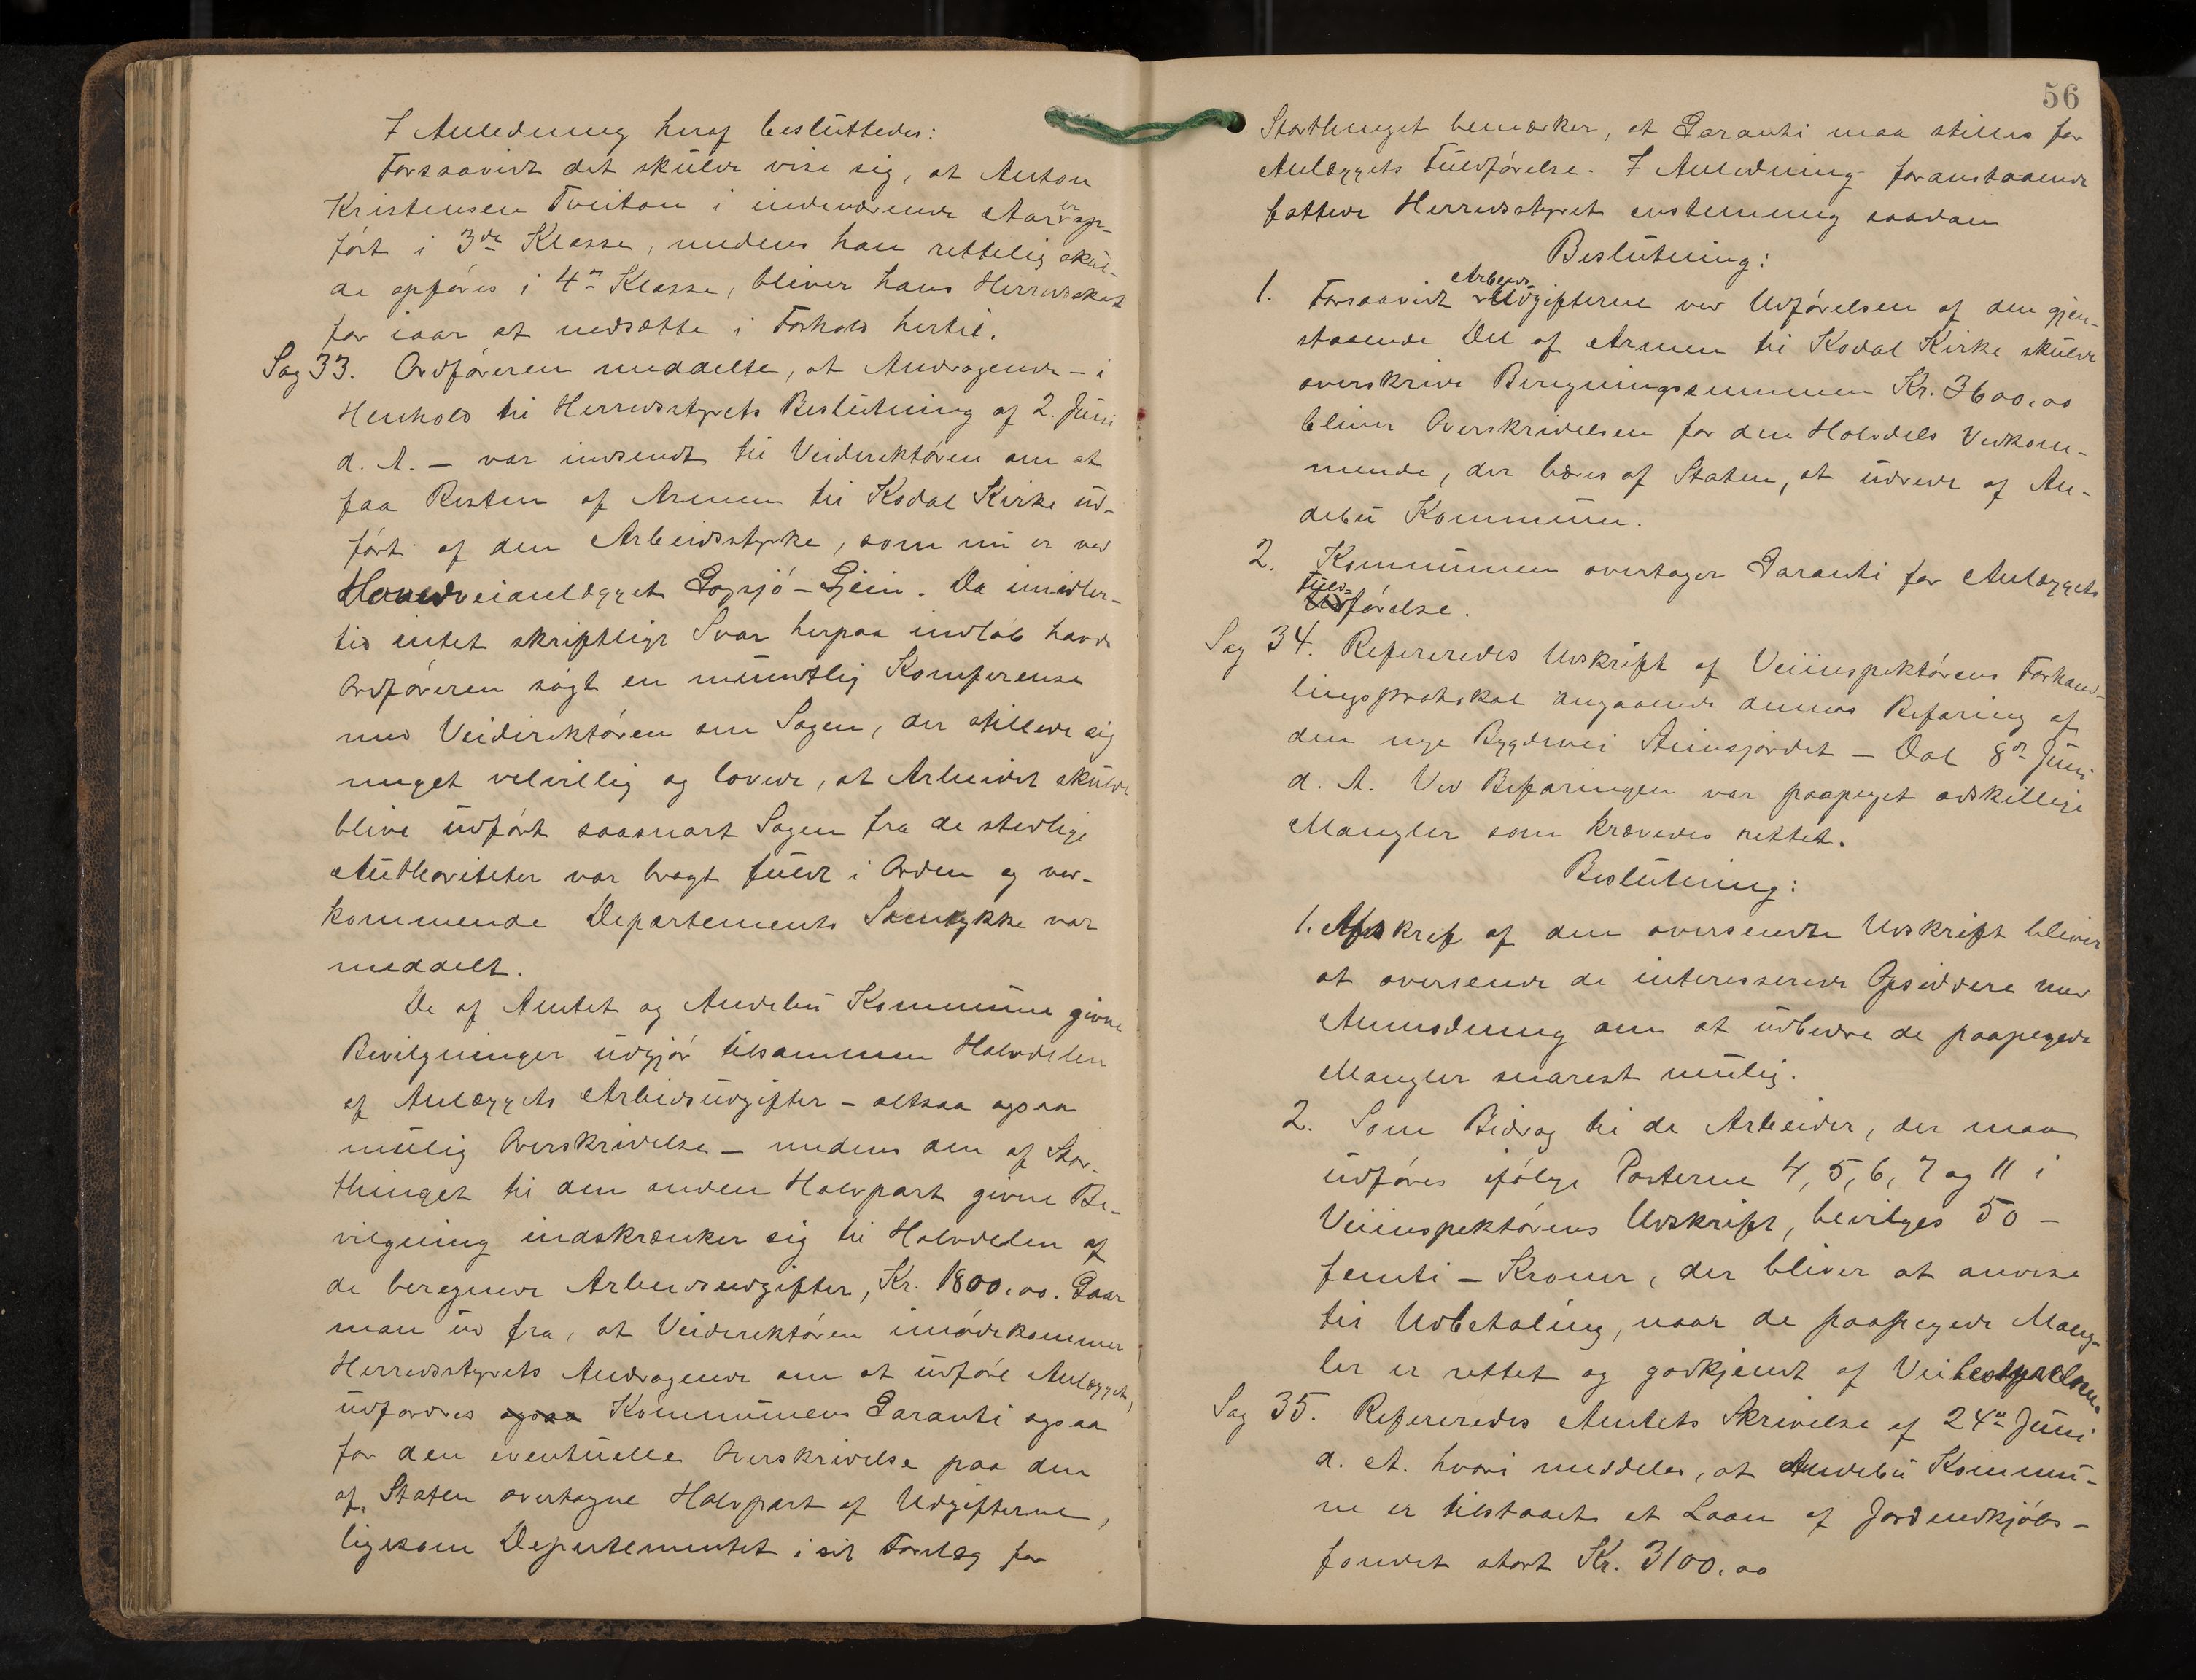 I Anledning heraf besluttedes:
Forsaavidt det skulde vise sig, at Anton
Kristensen Tveitan i indeværende Aar er op-
ført i 3de Klasse, medens han rettelig skul-
de opføres i 4de Klasse, bliver hans Herredsskat
for iaar at nedsætte i Forhold hertil.
Sag 33. Ordføreren meddelte, at Andragende – i
Henhold til Herredsstyrets Beslutning af 2. Juni
d. A. – var indsendt til Veidirektøren om at
faa Resten af Armen til Kodal Kirke ud-
ført af den Arbeidsstyrke, som nu er ved
Hovedveianlægget Gogsjø – Gjein. Da imidler-
tid intet skriftligt Svar herpaa indløb havde
Ordføreren søgt en mundtlig Konferense
med Veidirektøren om Sagen, der stillede sig
meget velvillig og lovede, at Arbeidet skulde
blive udført saasnart Sagen fra de stedlige
Authoriteter var bragt fuldt i Orden og ved-
kommende Departements Samtykke var
meddelt.
De af Amtet og Andebu Kommune givne
Bevilgninger udgjør tilsammen Halvdelen
af Anlæggets Arbeidsudgifter – altsaa ogsaa
mulig Overskridelse – medens den af Stor-
thinget til den anden Halvpart givne Be-
vilgning indskrænker sig til Halvdelen af
de beregnede Arbeidsudgifter, Kr. 1800.00. Gaar
man ud fra, at Veidirektøren imødekommer
Herredsstyrets Andragende om at udføre Anlægget,
udfordres ogsaa Kommunens Garanti ogsaa
for den eventuelle Overskridelse paa den
af Staten overtagne Halvpart af Udgifterne,
ligesom Departementet i sit Forslag for
56
Storthinget bemærker, at Garanti maa stilles for
Anlæggets Fuldførelse. I Anledning foranstaaende
fattede Herredsstyret enstemmig saadan
Beslutning:
1. Forsaavidt Arbeids-Udgifterne ved Udførelsen af den gjen-
staaende Del af Armen til Kodal Kirke skulde
overskride Beregningssummen Kr. 3600.00
bliver Overskridelsen for den Halvdels Vedkom-
mende, der bæres af Staten, at udrede af An-
debu Kommune.
2. Kommunen overtager Garanti for Anlæggets
Fuld-
Udførelse.
Sag 34. Refereredes Udskrift af Veiinspektørens Forhand-
lingsprotokol angaaende dennes Befaring af
den nye Bygdevei Steinsjordet – Dal 8de Juni
d. A. Ved Befaringen var paapeget adskillige
Mangler som krævedes rettet.
Beslutning:
1. Afskrift af den oversendte Udskrift bliver
at oversende de interesserede Opsiddere med
Anmodning om at udbedre de paapegede
Mangler snarest mulig.
2. Som Bidrag til de Arbeider, der maa
udføres ifølge Posterne 4, 5, 6, 7 og 11 i
Veiinspektørens Udskrift, bevilges 50 –
femti – Kroner, der bliver at anvise
til Udbetaling, naar de paapegede Mang-
ler er rettet og godkjendt af Veibestyrelsen.
Sag 35. Refereredes Amtets Skrivelse af 24de Juni
d. A. hvori meddeles, at Andebu Kommu-
ne er tilstaaet et Laan af Jordindkjøbs-
fondet stort Kr. 3100.00